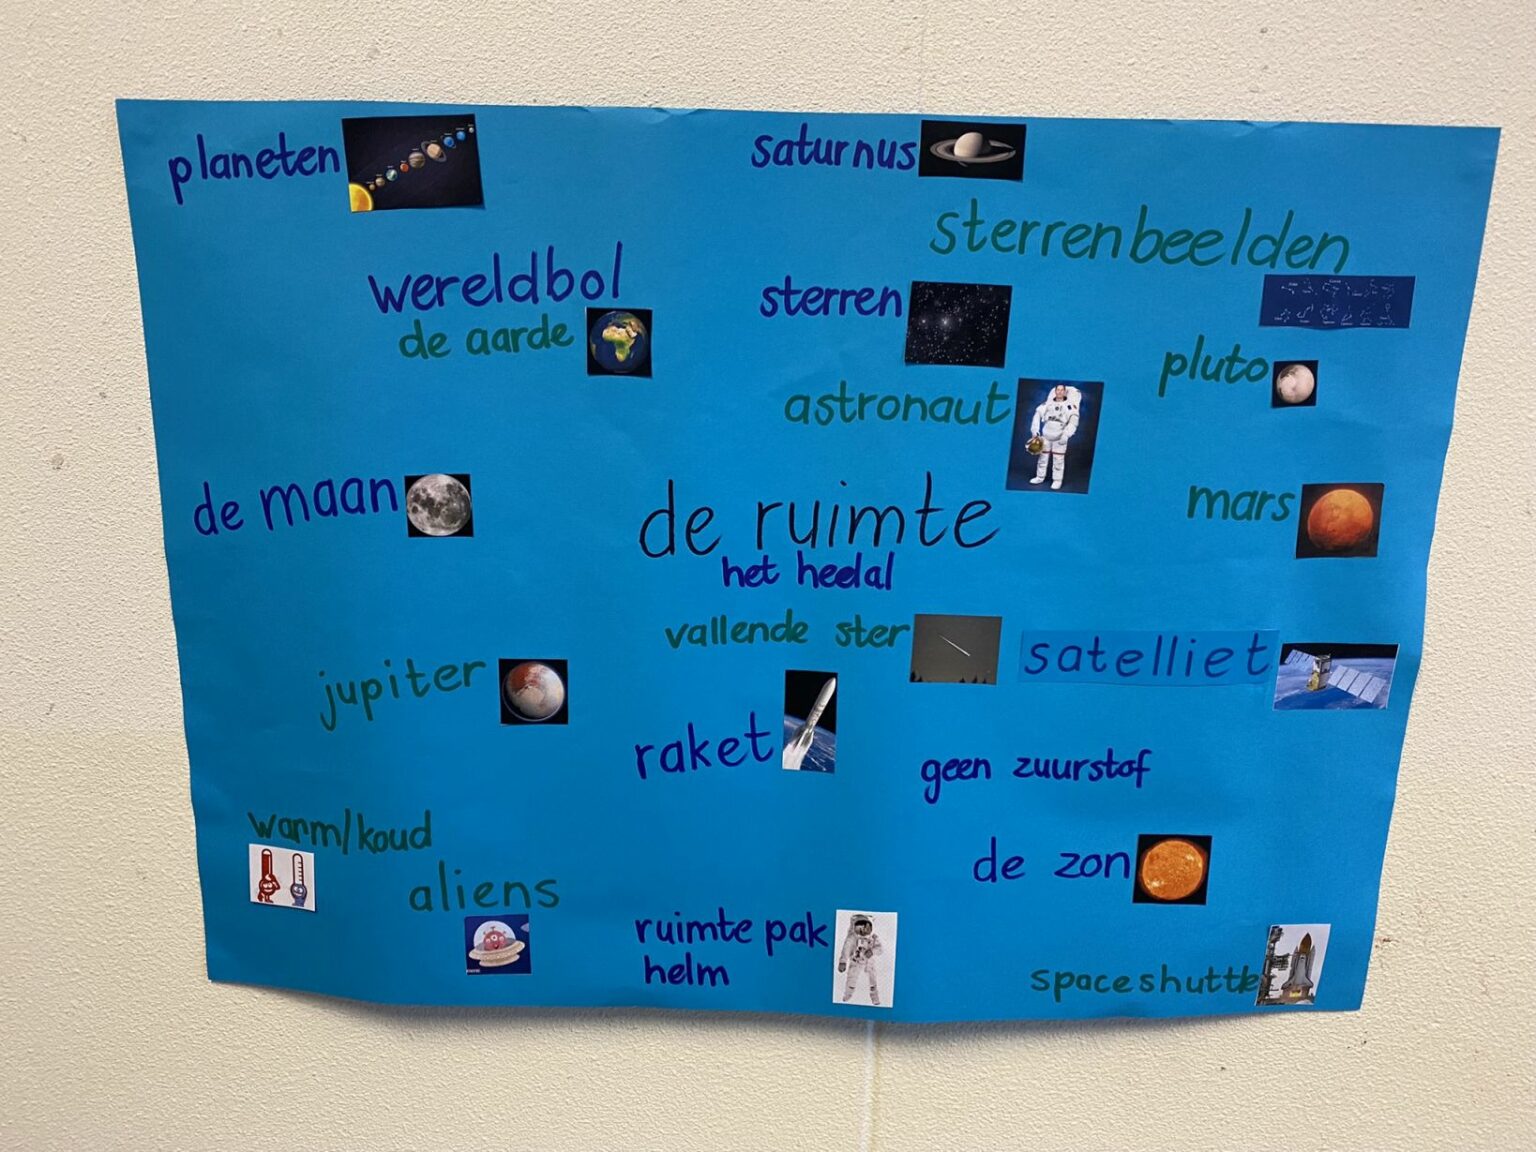 planeten
saturnus
sterrenbeelden
wereldbol
de aarde
sterren
pluto
astronaut
de maan
de ruimte
het heelal
mars
vallende ster
satelliet
jupiter
raket
geen zuurstof
warm/koud
de zon
aliens
ruimte pak
helm
spaceshuttle